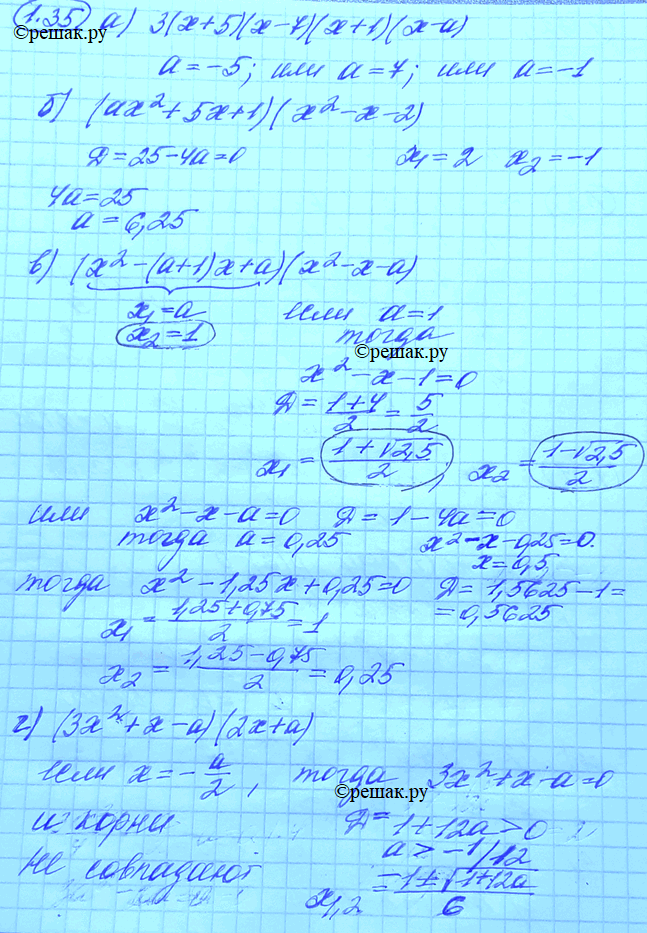 1.35 а) 3(x+5)(x-7)(x+1)(x-a)
©решак.ру
a=-5; или a=7; или a=-1
б) (ax²+5x+1)(x²-x-2)
Д=25-4a=0 x₁=2 x₂=-1
4a=25
a=6,25
в) (x²-(a+1)x+a)(x²-x-a)
x₁=a если a=1
x₂=1 тогда
©решак.ру
x²-x-1=0
Д=(1+4)/2=5/2
x₁=(1+√2,5)/2, x₂=(1-√2,5)/2
или x²-x-a=0 Д=1-4a=0
тогда a=0,25 x²-x-0,25=0.
x=0,5
тогда x²-1,25x+0,25=0 Д=1,5625-1=
=0,5625
x₁=(1,25+0,75)/2=1
x₂=(1,25-0,75)/2=0,25
г) (3x²+x-a)(2x+a)
если x=-a/2, тогда 3x²+x-a=0
©решак.ру
и корни Д=1+12a>0
не совпадают a>-1/12
x₁,₂=(-1±√1+12a)/6